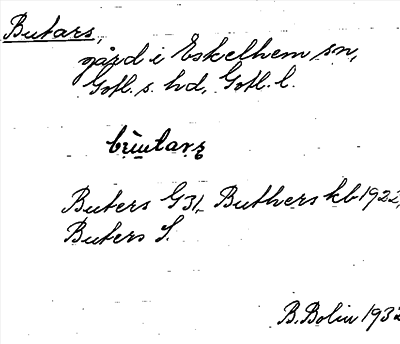 Butars,
gård i Eskelhem sn,
Gotl. s. hd, Gotl. l.
Buters G31, Buthers kb 1922,
Buters S.
B. Bolin 1932